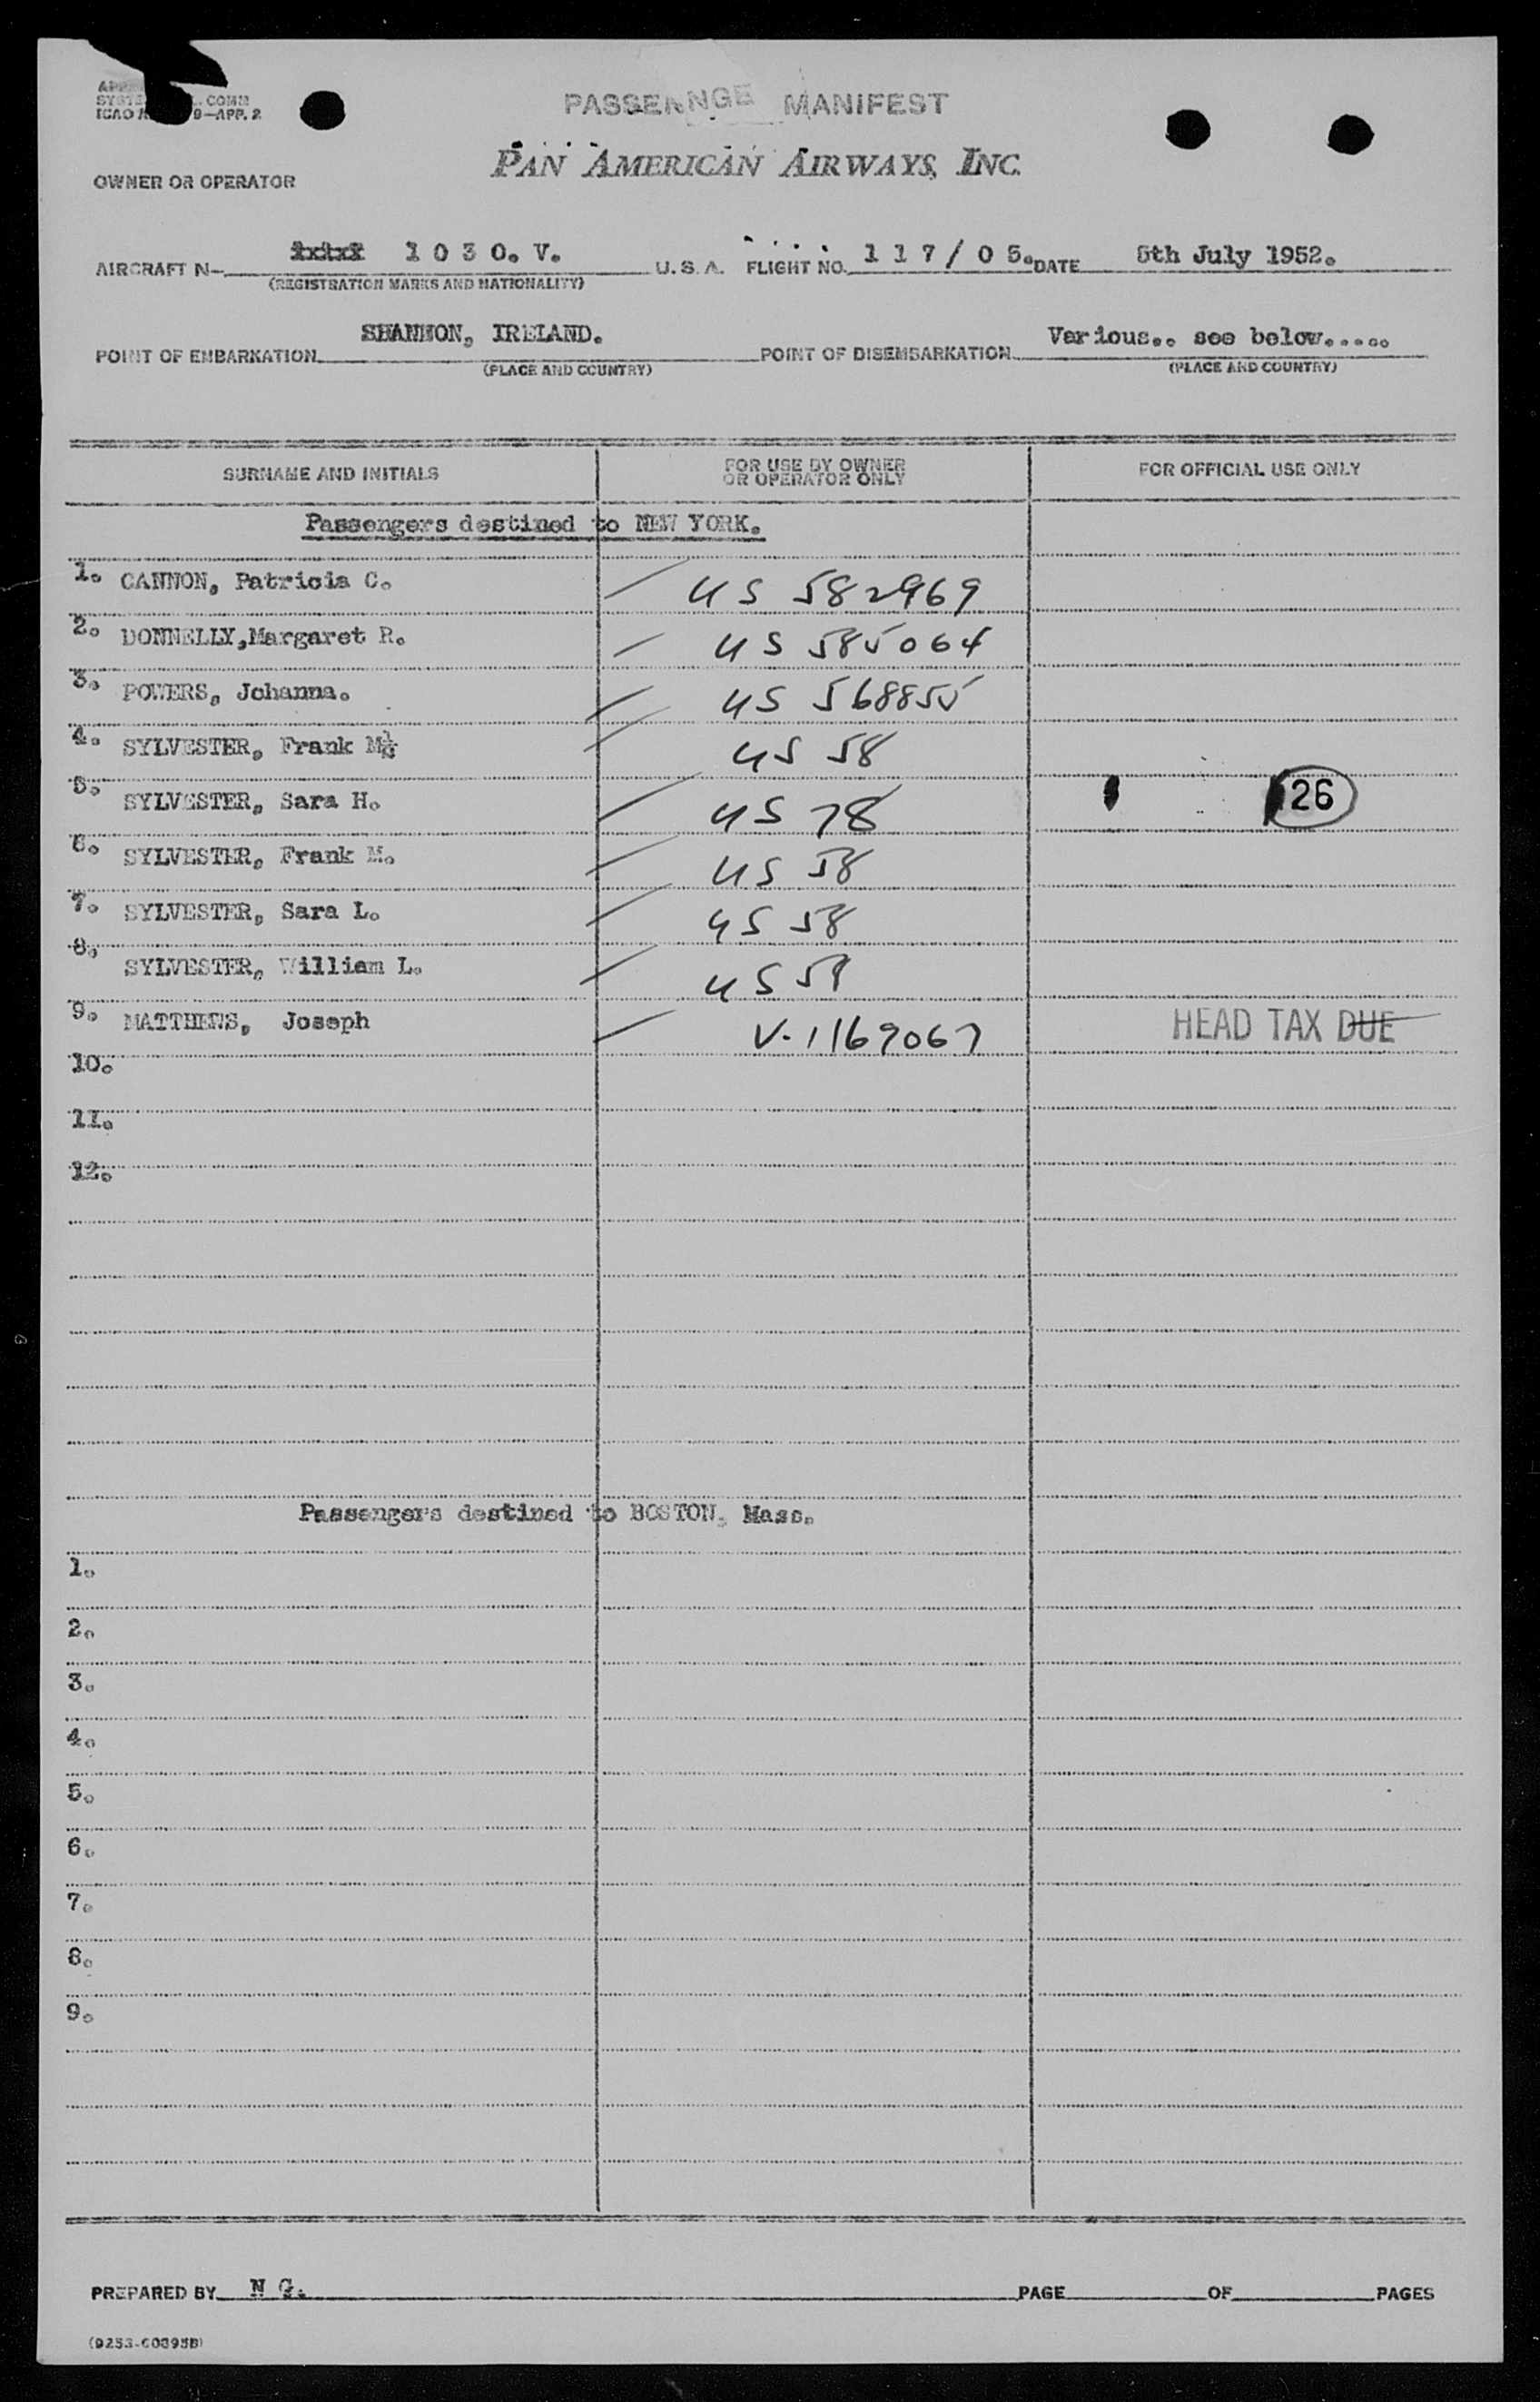 PASSENGE MANIFEST
ICAO 9—APP. 2
PAN AMERICAN AIRWAYS, INC.
OWNER OR OPERATOR
AIRCRAFT N- 1 0 3 0. V. U. S. A. FLIGHT NO. 1 1 7 / 0 5. DATE 5th July 1952.
(REGISTRATION MARKS AND NATIONALITY)
POINT OF EMBARKATION SHANNON, IRELAND. POINT OF DISEMBARKATION Various.. see below.....
(PLACE AND COUNTRY) (PLACE AND COUNTRY)
SURNAME AND INITIALS FOR USE BY OWNER OR OPERATOR ONLY FOR OFFICIAL USE ONLY
Passengers destined to NEW YORK.
1. CANNON, Patricia C. US 582969
2. DONNELLY, Margaret R. US 585064
3. POWERS, Johanna. US 568855
4. SYLVESTER, Frank US 58
5. SYLVESTER, Sara H. US 78 26
6. SYLVESTER, Frank M. US 58
7. SYLVESTER, Sara L. US 58
8. SYLVESTER, William L. US 59
9. MATTHEWS, Joseph V-1169067 HEAD TAX DUE
10.
11.
12.
Passengers destined to BOSTON, Mass.
1.
2.
3.
4.
5.
6.
7.
8.
9.
PREPARED BY N G. PAGE OF PAGES